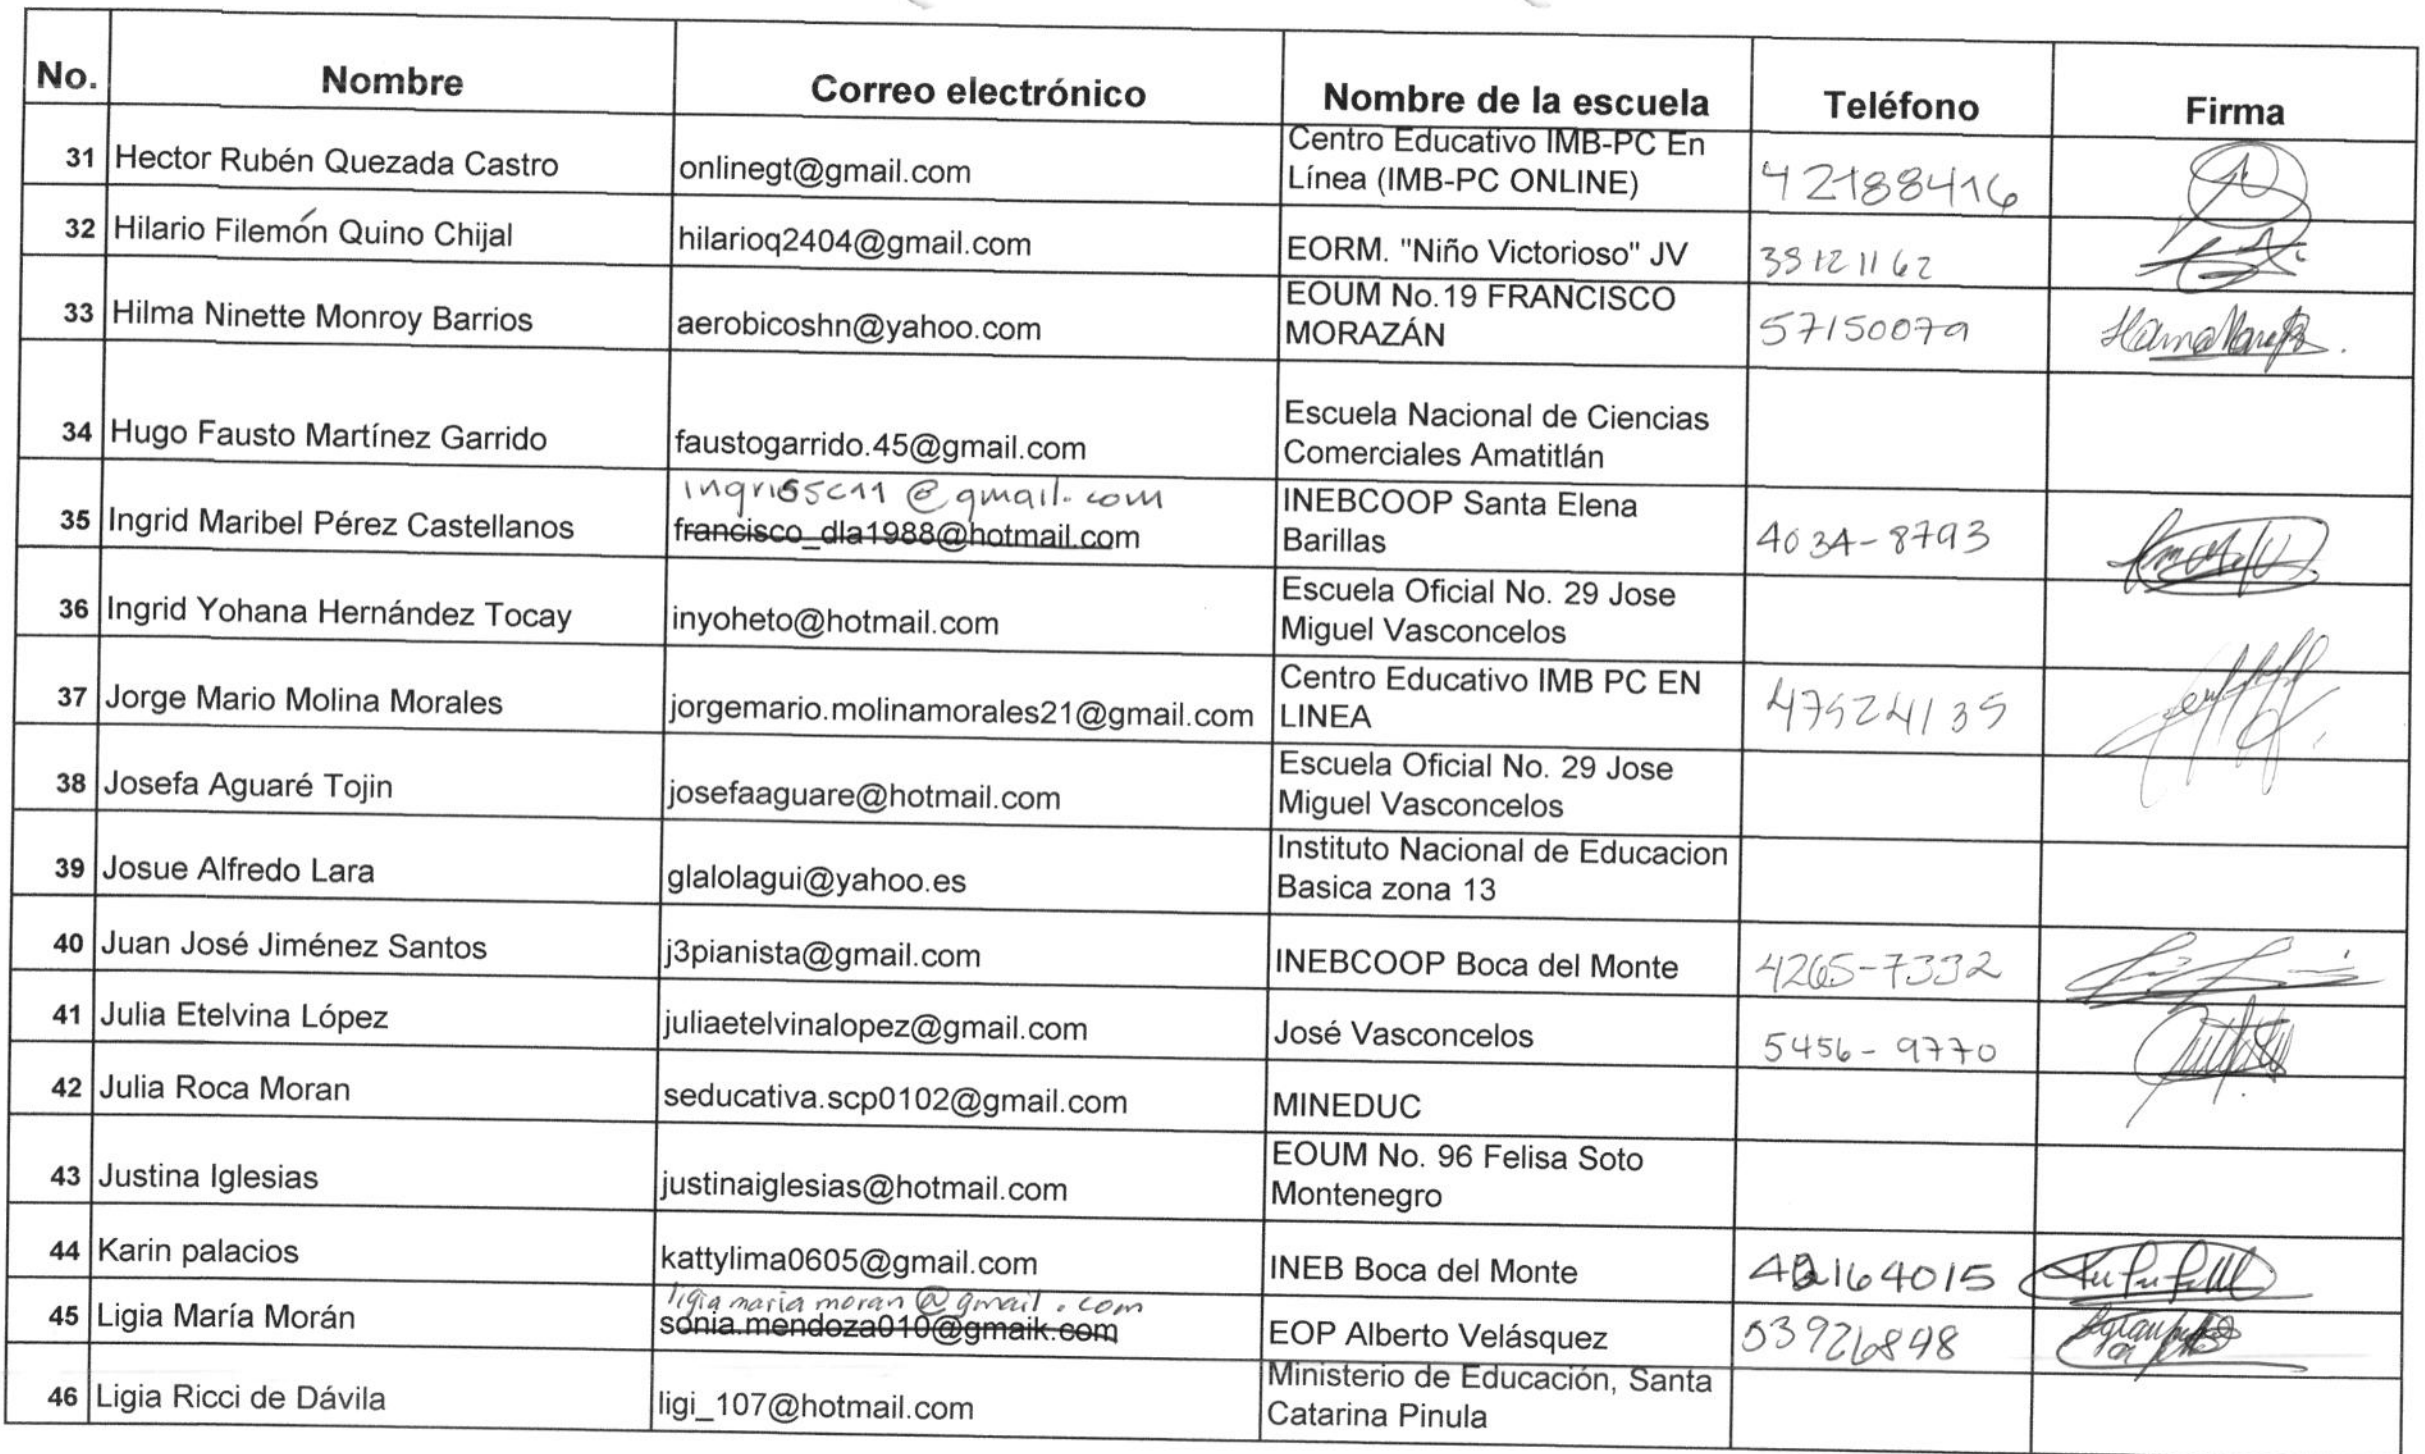 No. Nombre Correo electrónico Nombre de la escuela Teléfono Firma
31 Hector Rubén Quezada Castro onlinegt@gmail.com Centro Educativo IMB-PC En
Línea (IMB-PC ONLINE) 42188416
32 Hilario Filemón Quino Chijal hilarioq2404@gmail.com EORM. "Niño Victorioso" JV
33 Hilma Ninette Monroy Barrios aerobicoshn@yahoo.com EOUM No.19 FRANCISCO
MORAZÁN 57150079
34 Hugo Fausto Martínez Garrido faustogarrido.45@gmail.com Escuela Nacional de Ciencias
Comerciales Amatitlán
@gmail.com
35 Ingrid Maribel Pérez Castellanos francisco_dla1988@hotmail.com INEBCOOP Santa Elena
Barillas 4034-8793
36 Ingrid Yohana Hernández Tocay inyoheto@hotmail.com Escuela Oficial No. 29 Jose
Miguel Vasconcelos
37 Jorge Mario Molina Morales jorgemario.molinamorales21@gmail.com Centro Educativo IMB PC EN
LINEA 47524135
38 Josefa Aguaré Tojin josefaaguare@hotmail.com Escuela Oficial No. 29 Jose
Miguel Vasconcelos
39 Josue Alfredo Lara glalolagui@yahoo.es Instituto Nacional de Educacion
Basica zona 13
40 Juan José Jiménez Santos j3pianista@gmail.com INEBCOOP Boca del Monte 4265-7332
41 Julia Etelvina López juliaetelvinalopez@gmail.com José Vasconcelos 5456-9770
42 Julia Roca Moran seducativa.scp0102@gmail.com MINEDUC
43 Justina Iglesias justinaiglesias@hotmail.com EOUM No. 96 Felisa Soto
Montenegro
44 Karin palacios kattylima0605@gmail.com INEB Boca del Monte
ligiamariamoran@gmail.com
45 Ligia María Morán sonia.mendoza010@gmaik.com EOP Alberto Velásquez 53926848
46 Ligia Ricci de Dávila ligi_107@hotmail.com Ministerio de Educación, Santa
Catarina Pinula